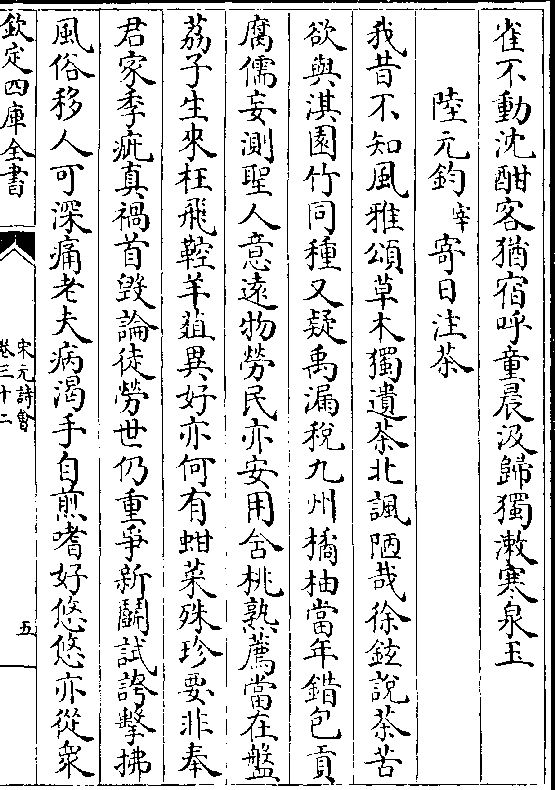 雀不動沈酣客猶宿呼童晨汲歸獨漱寒泉玉
陸元鈞宰寄日注茶
我昔不知風雅頌草木獨遺茶北諷陋哉徐鉉說茶苦
欲與淇園竹同種又疑禹漏稅九州橘柚當年錯包貢
腐儒妄測聖人意遠物勞民亦安用含桃熟薦當在盤
荔子生來枉飛鞚羊葅異好亦何有蚶菜殊珍要非奉
君家季疵真禍首毀論徒勞世仍重爭新鬭試誇擊拂
風俗移人可深痛老夫病渴手自煎嗜好悠悠亦從衆
欽定四庫全書
宋元詩會
卷三十二
五